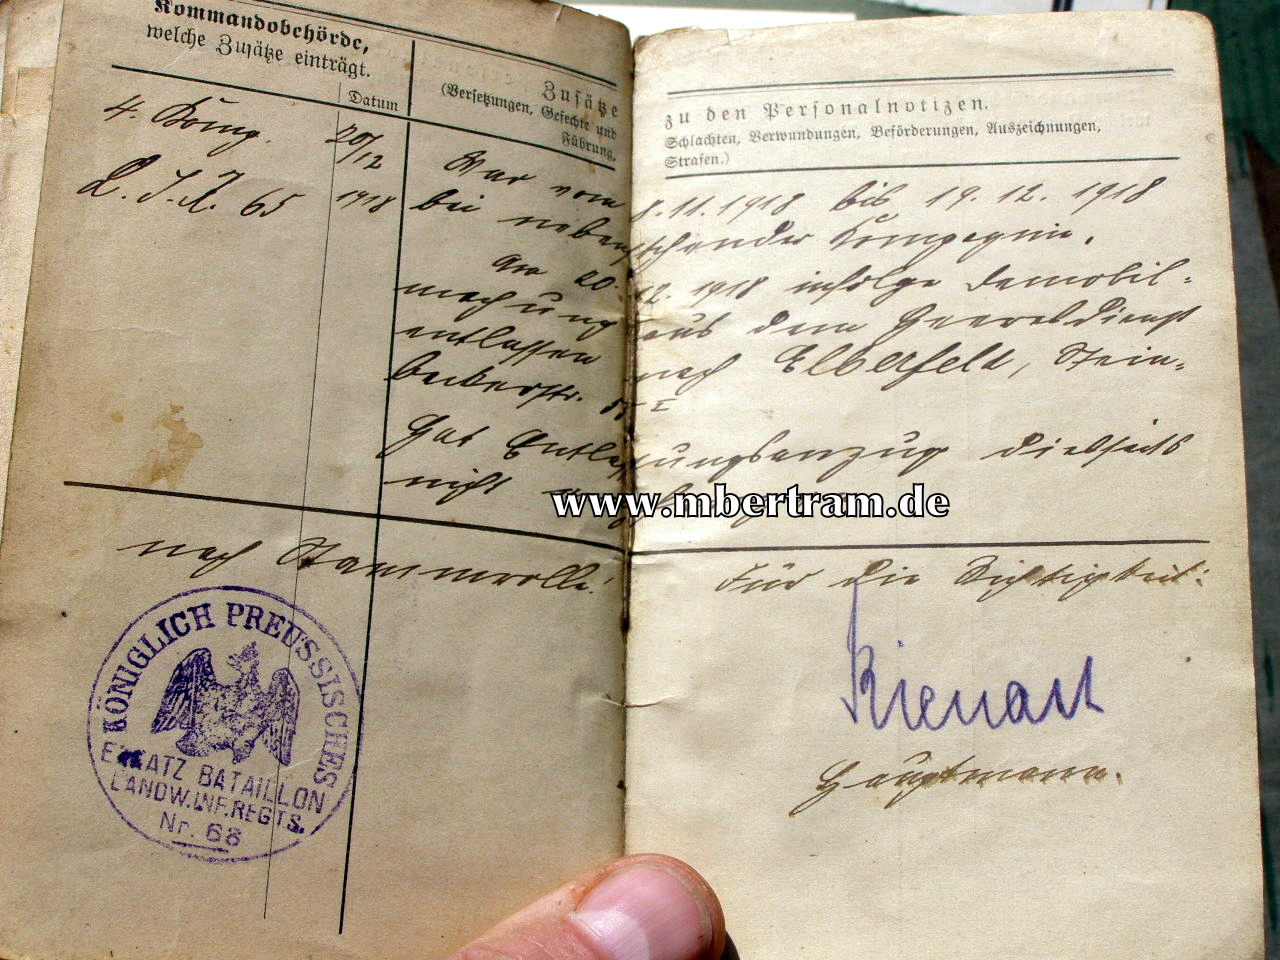 Kommandobehörde,
welche Zusätze einträgt.
Datum
Zusätze
(Versetzungen, Gefechte und
Führung,
zu den Personalnotizen.
Schlachten, Verwundungen, Beförderungen, Auszeichnungen,
Strafen.)
4. Komp.
L. I. R. 65
20/12
1918
War vom 8.11.1918 bis 19.12.1918
bei nebenstehender Kompagnie.
Am 20.12.1918 infolge Demobil-
machung aus dem Heeresdienst
entlassen nach Elberfeld, Stein-
beckerstr.
Hat Entlassungsanzug diesseits
nicht
www.mbertram.de
nach Stammrolle!
Für die Richtigkeit:
Hauptmann.
KÖNIGLICH PREUSSISCHES
ERSATZ BATAILLON
LANDW. INF. REGTS.
Nr. 68